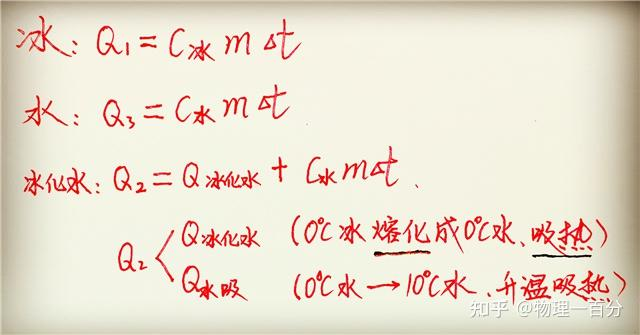 冰: Q₁ = C冰 m Δt
水: Q₃ = C水 m Δt
冰化水: Q₂ = Q冰化水 + C水 m Δt.
Q冰化水 (0℃冰熔化成0℃水、吸热)
Q₂
Q水吸 (0℃水→10℃水、升温吸热)
知乎 @物理一百分